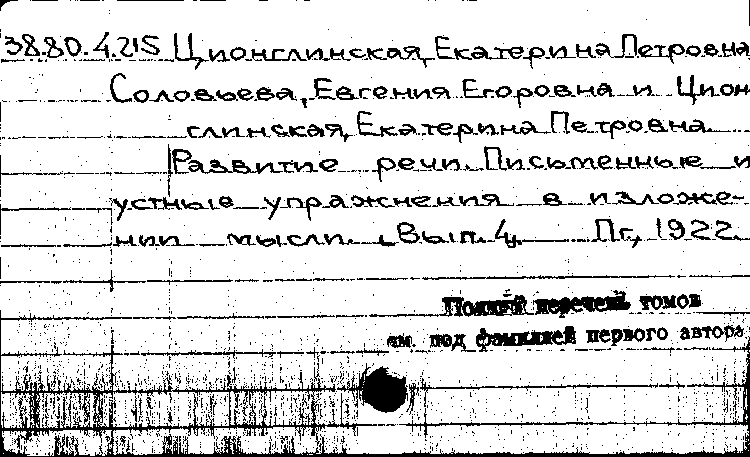 38.80.4.215 Ционглинская, Екатерина Петровна
Соловьева, Евгения Егоровна и Цион
глинская, Екатерина Петровна.
Развитие речи. Письменные и
устные упражнения в изложе-
нии мысли. [Вып. 4]. Пг., 1922.
Полный перечень томов
см. под фамилией первого автора